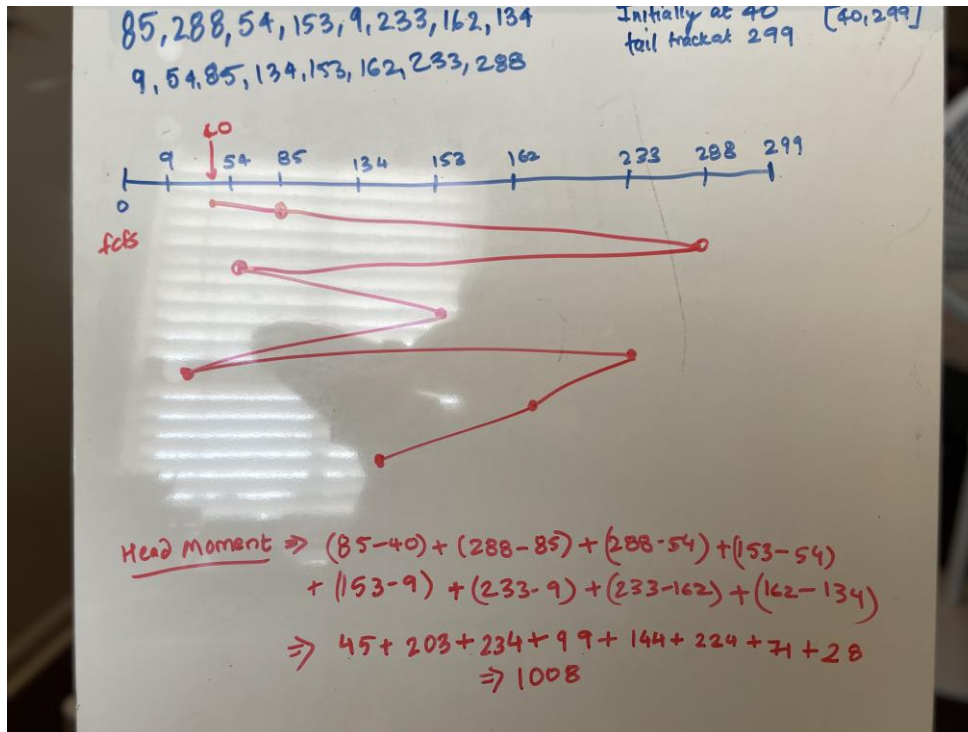 85,288,54,153,9,233,162,134
Initially at 40 [40,299]
tail track at 299
9,54,85,134,153,162,233,288
40
9 54 85 134 153 162 233 288 299
0
fcfs
Head Moment ⇒ (85-40)+(288-85)+(288-54)+(153-54)
+(153-9)+(233-9)+(233-162)+(162-134)
⇒ 45+203+234+99+144+224+71+28
⇒ 1008